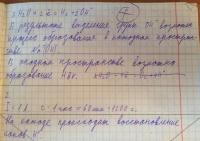 2H₂O + 2ē = H₂ + 2OH⁻
В результате выделения групп OH⁻ возможен
процесс образования в катодном простран-
стве NaOH.
В анодном пространстве возможно
образование HBr.
2
I = 1 A t = 1 час = 60 мин =
На катоде происходит восстановление
ионов H⁺